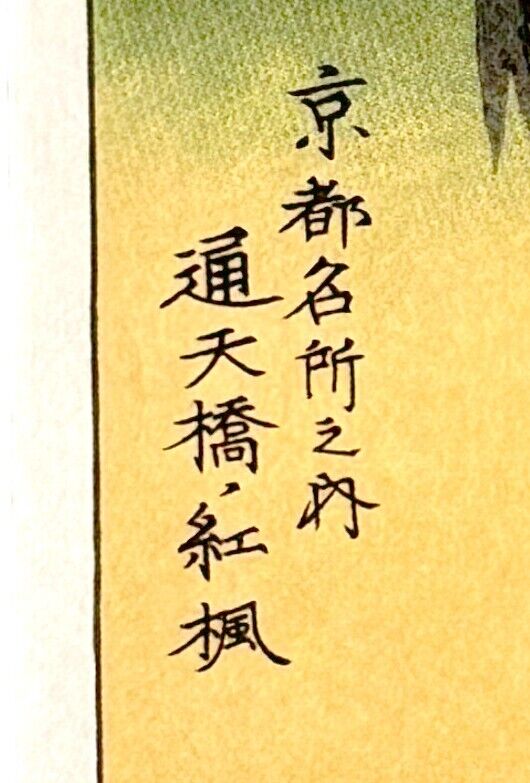 京都名所之内
通天橋、紅楓